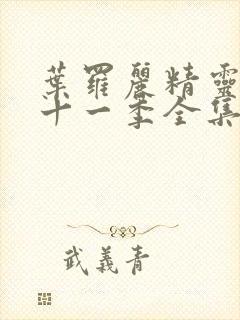 葉羅麗精靈
十一季全集
武義青